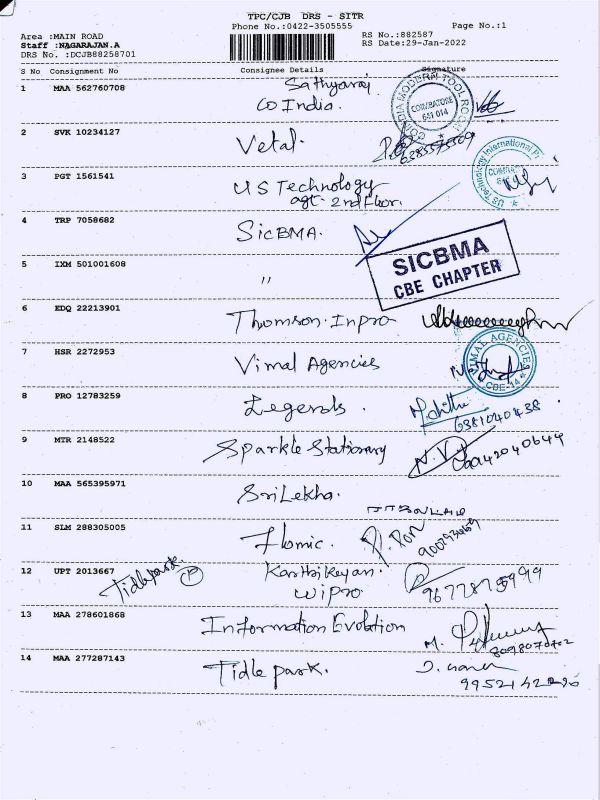 TPC/CJB DRS - SITR
Phone No.:0422-3505555
Page No.:1
Area :MAIN ROAD
RS No.:882587
Staff :NAGARAJAN.A
RS Date:29-Jan-2022
DRS No. :DCJB88258701
S No Consignment No Consignee Details Signature
1 MAA 562760708 Sathyaraj
Co India.
COINDIA MODERN TOOL ROOM
COIMBATORE
641 014
2 SVK 10234127 Vetal.
3 PGT 1561541 US Technology
agt. 2nd Floor.
US Technology International
4 TRP 7058682 SICBMA.
SICBMA
CBE CHAPTER
5 IXM 501001608 "
6 EDQ 22213901 Thomson. Inpro
7 HSR 2272953 Vimal Agencies
VIMAL AGENCIES
CBE-14
8 PRO 12783259 Legends.
6381040438
9 MTR 2148522 Sparkle Stationary
10 MAA 565395971 Sri Lekha.
11 SLM 288305005 Flomic.
12 UPT 2013667 Tidle park. P Karthikeyan.
Wipro
13 MAA 278601868 Information Evolution
14 MAA 277287143 Tidle park.